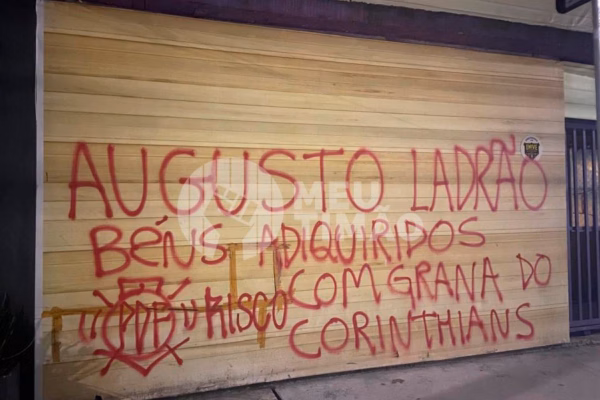 AUGUSTO LADRÃO
BéNS ADIQUIRIDOS
COM GRANA DO
CORINTHIANS
"PDP" RISCO
MEU
TIMÃO